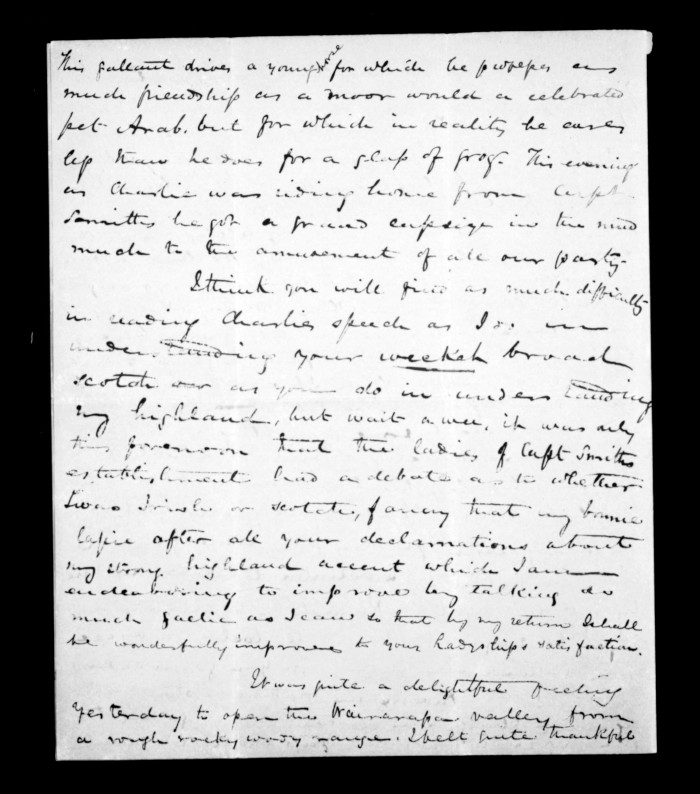 This gallant drives a young for which he professes as
much friendship as a moor would a celebrated
pet Arab, but for which in reality he cares
less than he does for a glass of grog. This evening
as Charlie was riding home from Capt
Smiths he got a grand capsize in the mud
much to the amusement of all our party-
I think you will find as much difficulty
in reading Charlies speech as I do in
understanding your broad
scotch or as you do in understanding
my highland, but wait a wee, it was only
this forenoon that the ladies of Capt Smiths
establishment had a debate as to whether
I was Irish or scotch, fancy that my bonnie
lassie after all your declarations about
my strong highland accent which I am
endeavoring to improve by talking as
much gaelic as I can so that by my return I shall
be wonderfully improved to your Ladyship's satisfaction.
It was quite a delightful feeling
yesterday to open the Wairarapa valley from
a rough rocky woody range. I felt quite thankful